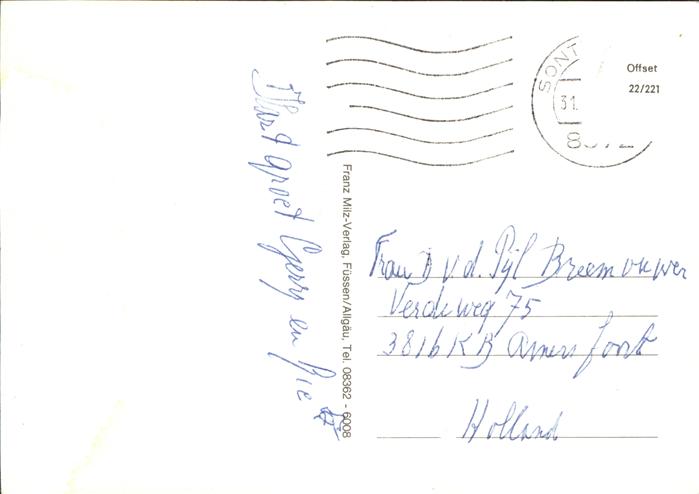 Hart groet Gerry en Rie
Franz Milz-Verlag, Füssen/Allgäu, Tel. 08362 - 6008
SONT
31.
Offset
22/221
Frau B v.d. Pijl Breemouwer
Verdiweg 75
3816 KB Amersfoort
Holland